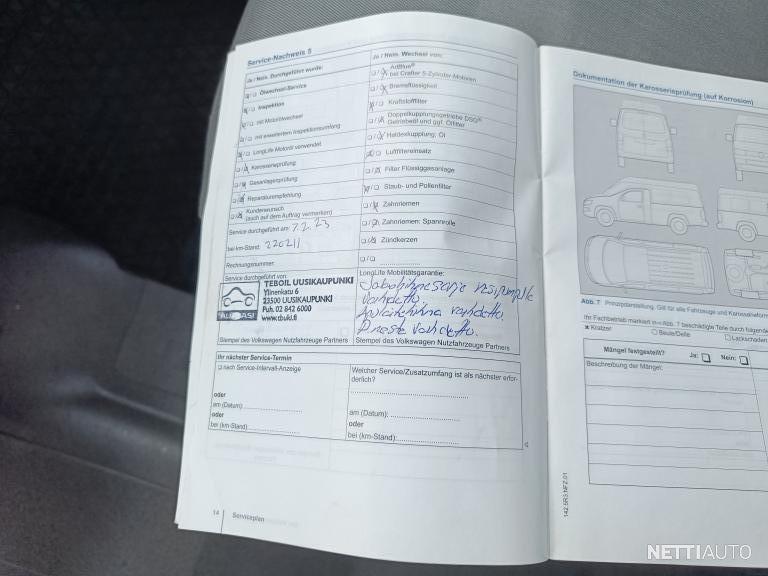 Service-Nachweis 5
Ja / Nein. Durchgeführt wurde:
Ölwechsel-Service
Inspektion
mit Motorölwechsel
mit erweitertem Inspektionsumfang
LongLife Motoröl verwendet
Karosserieprüfung
Gasanlagenprüfung
Reparaturempfehlung
Kundenwunsch
(auch auf dem Auftrag vermerken)
Service durchgeführt am: 7.2.23
bei km-Stand: 220211
Rechnungsnummer:
Service durchgeführt von:
TEBOIL UUSIKAUPUNKI
Ylinenkatu 6
23500 UUSIKAUPUNKI
Puh. 02 842 6000
www.tbuki.fi
AUTOASI
Stempel des Volkswagen Nutzfahrzeuge Partners
Ja / Nein. Wechsel von:
AdBlue®
bei Crafter 5-Zylinder-Motoren
Bremsflüssigkeit
Kraftstofffilter
Doppelkupplungsgetriebe DSG®
Getriebeöl und ggf. Ölfilter
Haldexkupplung: Öl
Luftfiltereinsatz
Filter Flüssiggasanlage
Staub- und Pollenfilter
Zahnriemen
Zahnriemen: Spannrolle
Zündkerzen
LongLife Mobilitätsgarantie:
Jakohihnasarja vesipumppu
vaihdettu.
Apulaitehihna vaihdettu.
vaihdettu.
Stempel des Volkswagen Nutzfahrzeuge Partners
Ihr nächster Service-Termin
nach Service-Intervall-Anzeige
oder
am (Datum):
oder
bei (km-Stand):
Welcher Service/Zusatzumfang ist als nächster erfor-
derlich?
am (Datum):
oder
bei (km-Stand):
14 Serviceplan
Dokumentation der Karosserieprüfung (auf Korrosion)
Abb. 7 Prinzipdarstellung. Gilt für alle Fahrzeuge und Karosserieform
Ihr Fachbetrieb markiert in Abb. 7 beschädigte Teile durch folgende
Kratzer
Beule/Delle
Lackschaden
Mängel festgestellt? Ja: Nein:
Beschreibung der Mängel:
142.5R3.NFZ.01
NETTIAUTO